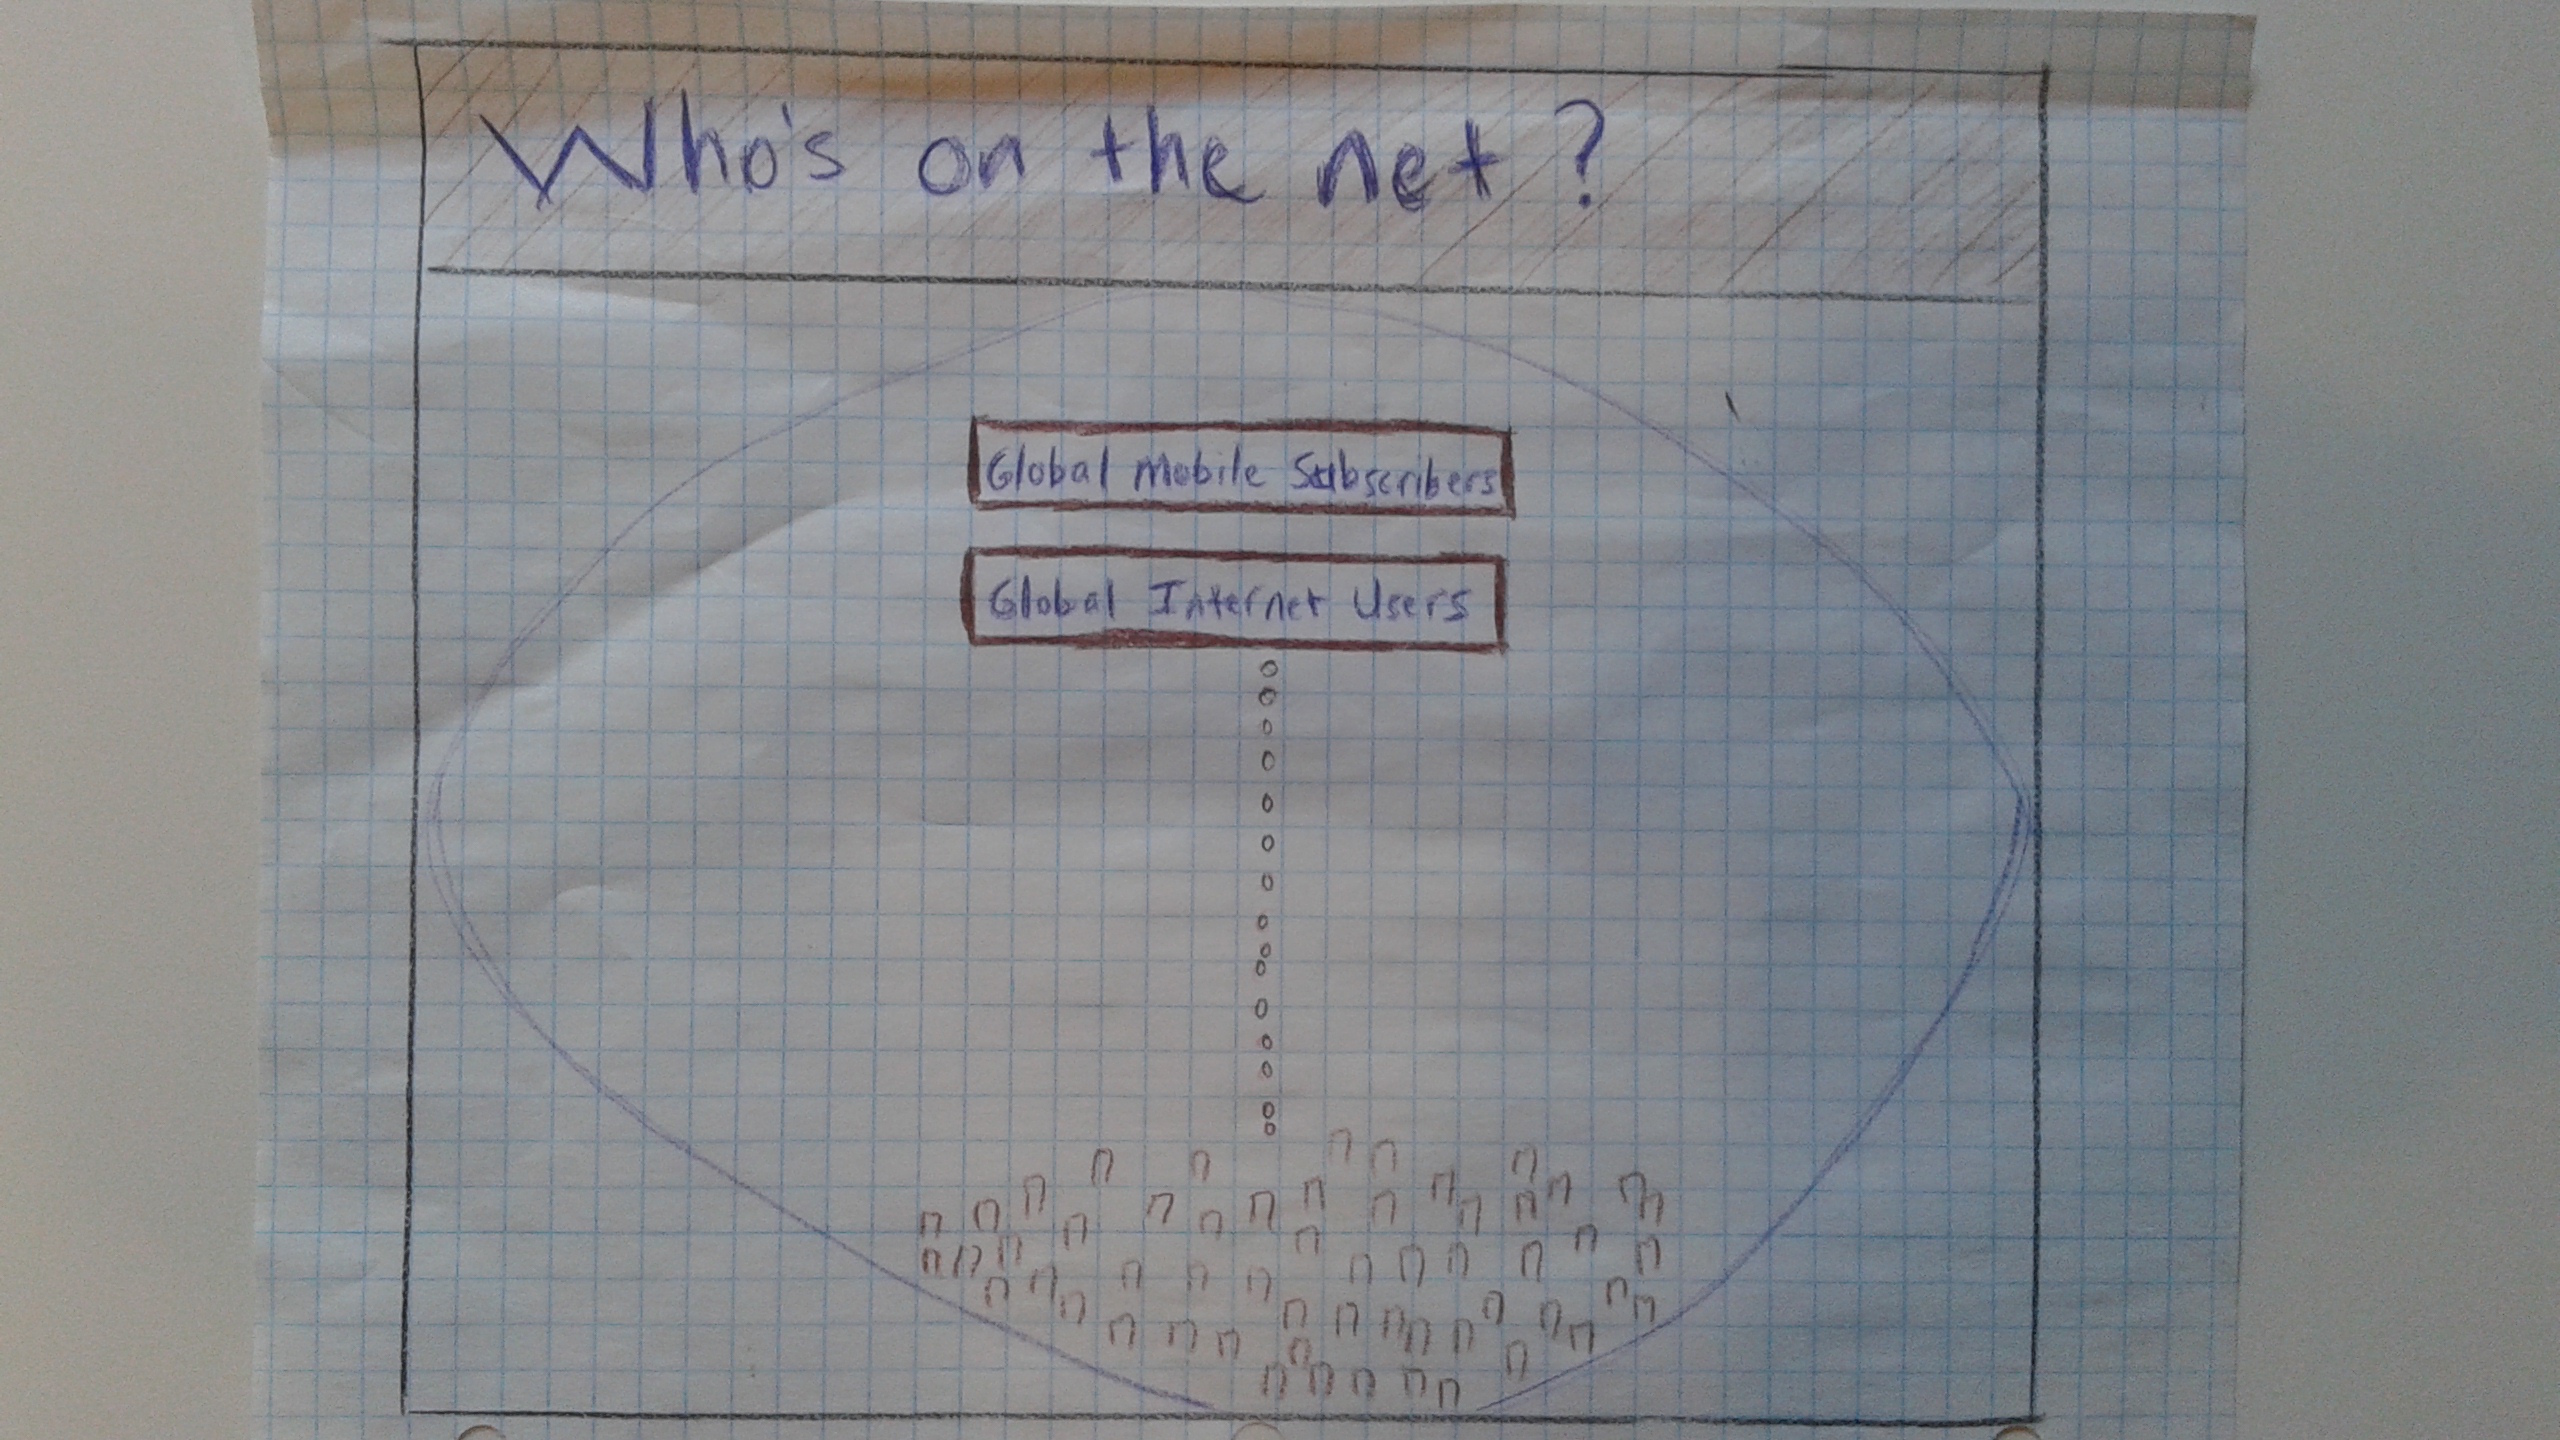 Who's on the net?
Global Mobile Subscribers
Global Internet Users